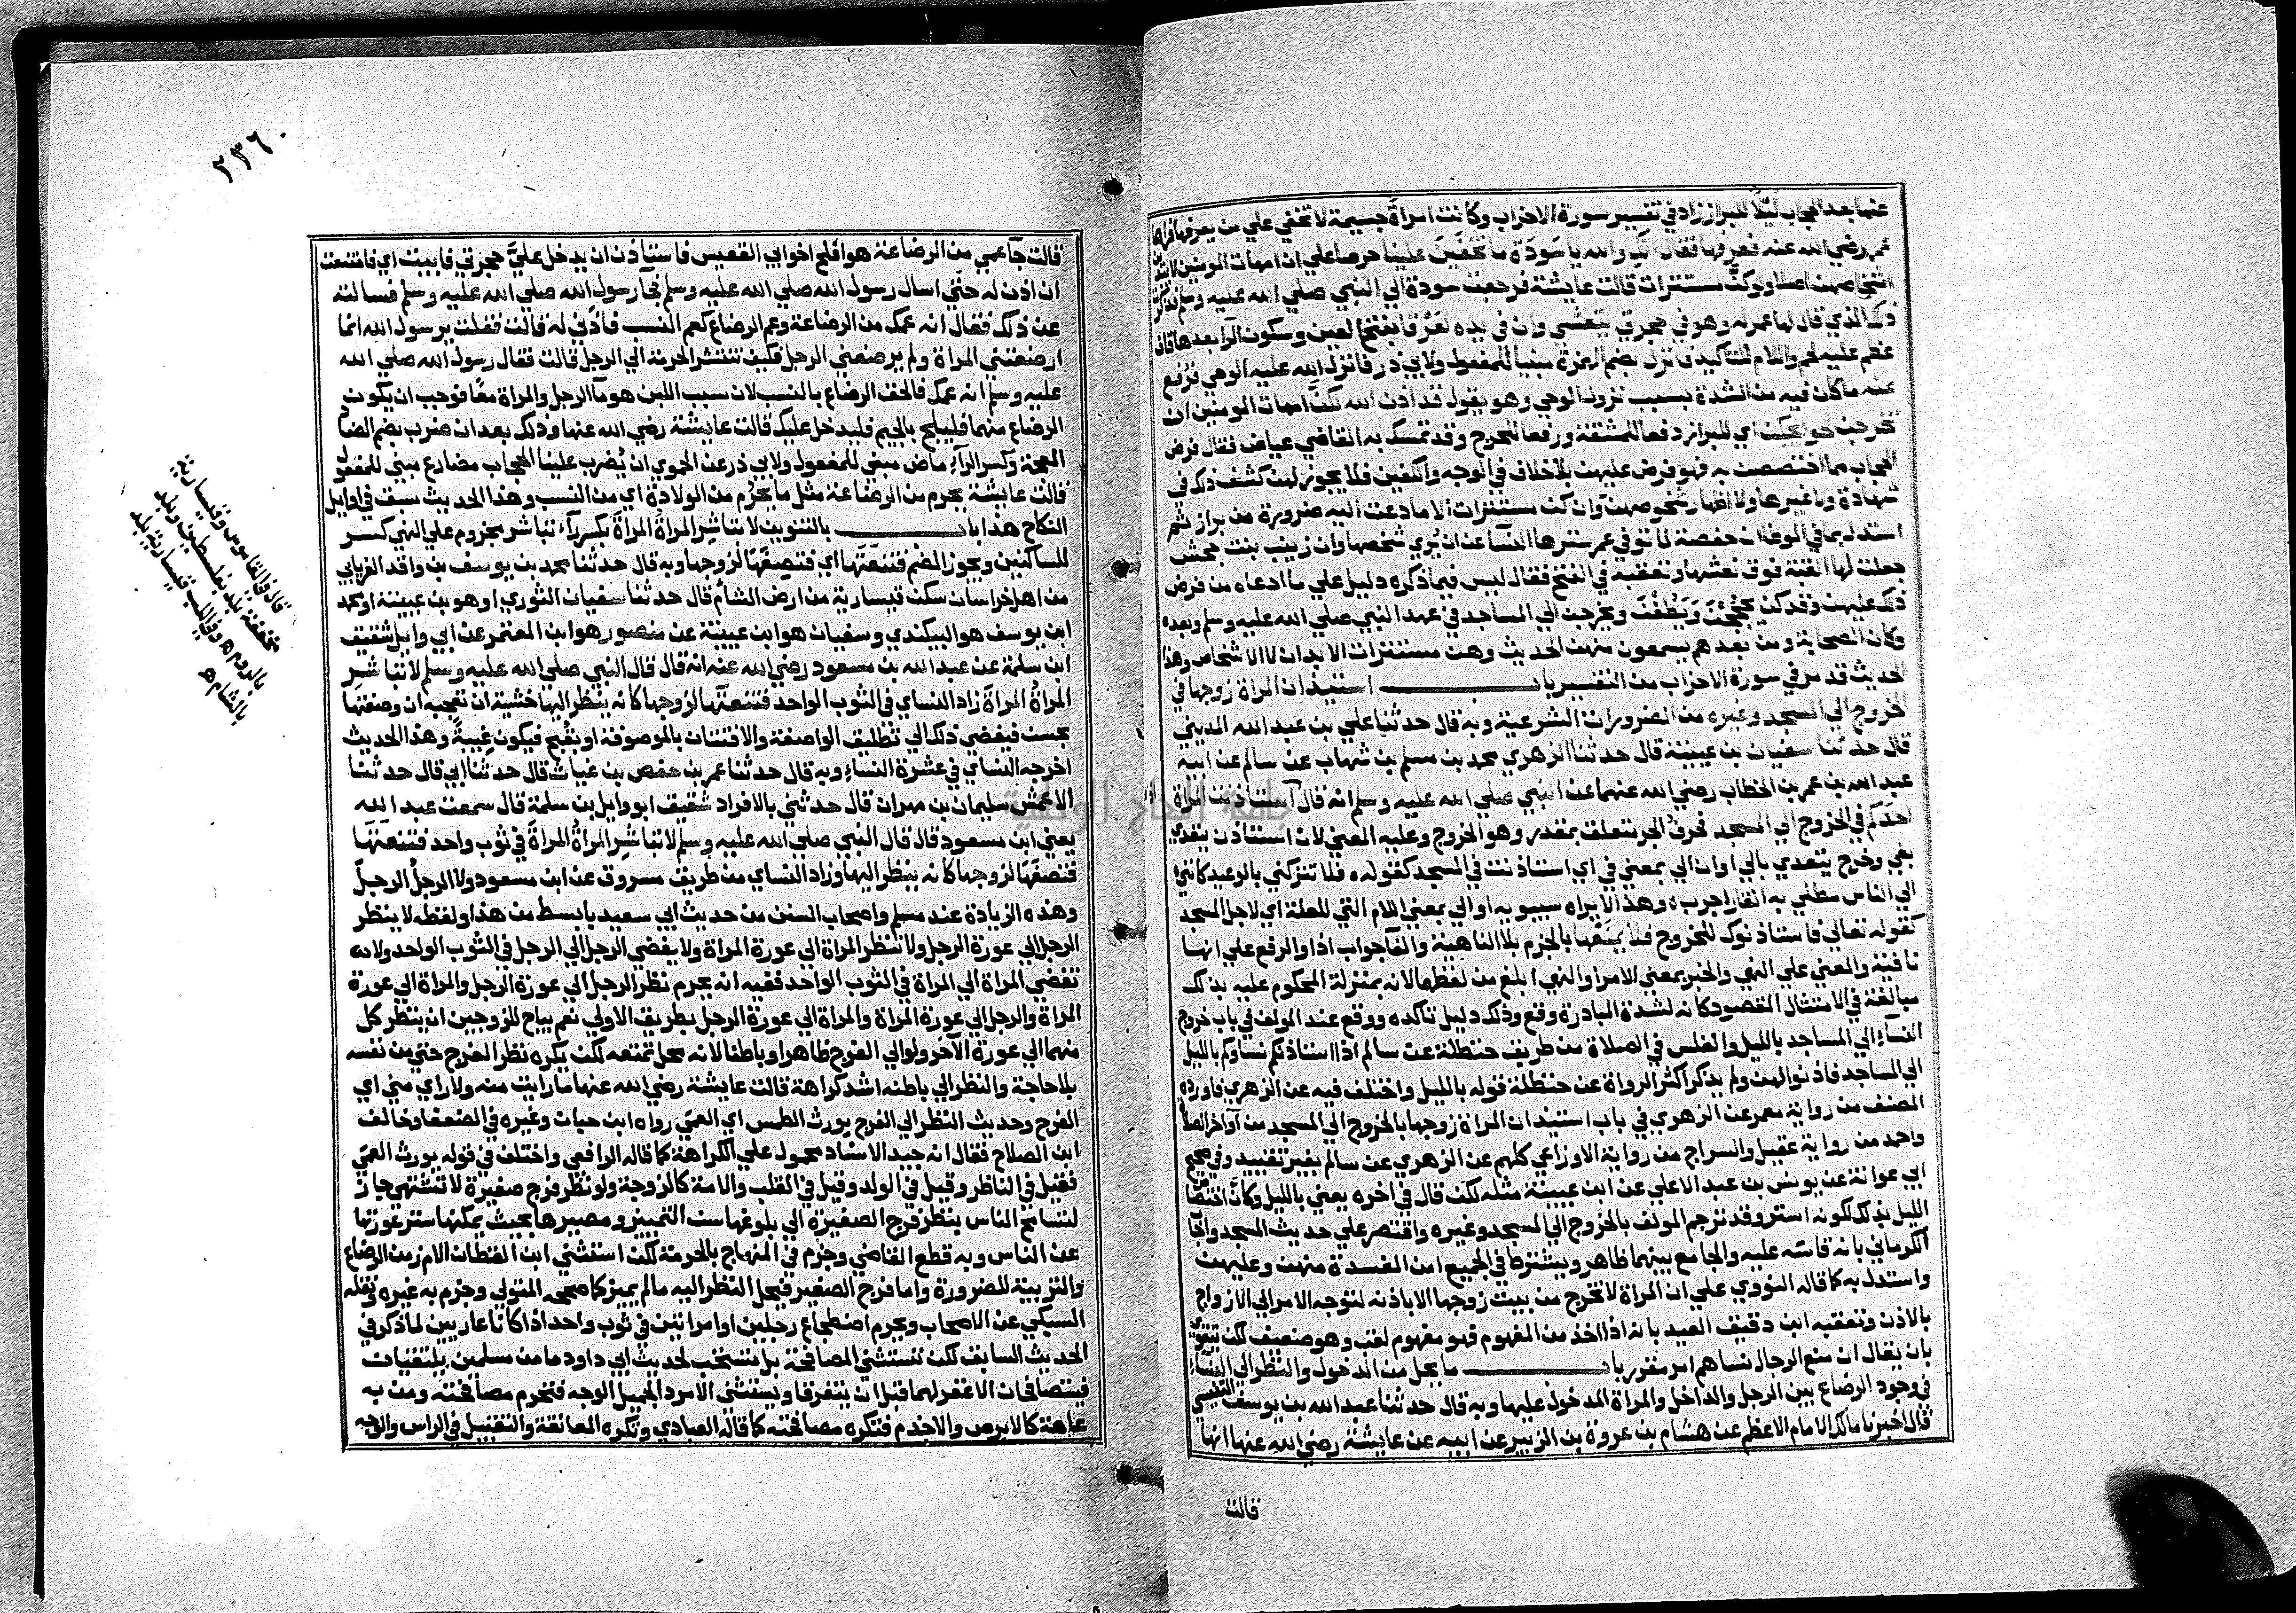 عنها بعد الحجاب ليلا للبراز زاد في تفسير سورة الاحزاب وكانت امراة جسيمة لا تخفي علي من يعرفها فراها
عمر رضي الله عنه فعرفها فقال انك والله يا سودة ما تخفين علينا حرصا علي ان امهات المومنين لا
اشخاصهن اصلا ولو كن مستترات قالت عايشة فرجعت سودة الي النبي صلي الله عليه وسلم فذكرت
ذلك الذي قال لها عمر له وهو في حجرتي يتعشي وان في يده لعرقا بفتح العين وسكون الرآ بعدها قاف
عظم عليه لحم واللام للتاكيد فانزل بضم الهمزة مبنيا للمفعول ولابي ذر فانزل الله عليه الوحي فرفع
عنه ما كان فيه من الشدة بسبب نزول الوحي وهو يقول قد اذن الله لكن امهات المومنين ان
تخرجن لحوايجكن اي للبراز دفعا للمشقة ورفعا للحرج وقد تمسك به القاضي عياض فقال فرض
الحجاب مما اختصصن به فهو فرض عليهن بلا خلاف في الوجه والكفين فلا يجوز لهن كشف ذلك في
شهادة ولا غيرها ولا اظهار شخوصهن وان كن مستترات الا ما دعت اليه ضرورة من براز ثم
استدل بما في الموطا ان حفصة لما توفي عمر سترها النسآ عن ان يري شخصها وان زينب بنت جحش
جعلت لها القبة فوق نعشها وتعقبه في الفتح فقال ليس فيما ذكره دليل علي ما ادعاه من فرض
ذلك عليهن وقد كن يحججن ويطفن ويخرجن الي المساجد في عهد النبي صلي الله عليه وسلم وبعده
وكان الصحابة ومن بعدهم يسمعون منهن الحديث وهن مستترات الابدان لا الاشخاص وهذا
الحديث قد مر في سورة الاحزاب من التفسير باب استيذان المراة زوجها في
الخروج الي المسجد وغيره من الضرورات الشرعية وبه قال حدثنا علي بن عبد الله المديني
قال حدثنا سفيان بن عيينة قال حدثنا الزهري محمد بن مسلم بن شهاب عن سالم عن ابيه
عبد الله بن عمر بن الخطاب رضي الله عنهما عن النبي صلي الله عليه وسلم انه قال اذا استاذنت امراة
احدكم في الخروج الي المسجد فحرف الجر تتعلق بمقدر وهو الخروج وعليه المعني لان استاذن يتعدي
بفي وخرج يتعدي بالي او ان الي بمعني في اي استاذنت في المسجد كقوله فلا تتركني بالوعيد كانني
الي الناس مطلي به القار اجرب وهذا لا يراه سيبويه او الي بمعني اللام التي للعلة اي لاجل المسجد
كقوله تعالي فاستاذنوك للخروج فلا يمنعها بالجزم بلا الناهية والفآ جواب اذا والرفع علي انها
نافية والمعني علي النهي والخبر بمعني الامر او النهي ابلغ من لفظهما لانه بمنزلة المحكوم عليه بذلك
مبالغة في الامتثال المقصود كانه لشدة المبادرة وقع وذلك دليل تاكده ووقع عند المولف في باب خروج
النسآ الي المساجد بالليل والغلس في الصلاة من طريق حنظلة عن سالم اذا استاذنكم نساوكم بالليل
الي المساجد فاذنوا لهن ولم يذكر اكثر الرواة عن حنظلة قوله بالليل واختلف فيه عن الزهري فاورده
المصنف من رواية معمر عن الزهري في باب استيذان المراة زوجها بالخروج الي المسجد من آواخر
واحمد من رواية عقيل والسراج من رواية الاوزاعي كلهم عن الزهري عن سالم بغير تقييد وفي صحيح
ابي عوانة عن يونس بن عبد الاعلي عن ابن عيينة مثله لكن قال في اخره يعني بالليل وكان اختصاص
الليل بذلك لكونه استر وقد ترجم المولف بالخروج الي المسجد وغيره واقتصر علي حديث المسجد واجاب
الكرماني بانه قاسه عليه والجامع بينهما ظاهر ويشترط في الجميع امن المفسدة منهن وعليهن
واستدل به كما قاله النووي علي ان المراة لا تخرج من بيت زوجها الا باذنه لتوجه الامر الي الازواج
بالاذن وتعقبه ابن دقيق العيد بانه اذا اخذ من المفهوم فهو مفهوم لقب وهو ضعيف لكن
بان يقال ان منع الرجال نساهم امر مقرر باب ما يحل من الدخول والنظر الي النسآء
في وجود الرضاع بين الرجل والداخل والمراة المدخول عليها وبه قال حدثنا عبد الله بن يوسف التنيسي
قال اخبرنا مالك الامام الاعظم عن هشام بن عروة بن الزبير عن ابيه عن عايشة رضي الله عنها انها
قالت
٢٣٦٠
قالت جآ عمي من الرضاعة هو افلح اخو ابي القعيس فاستاذن ان يدخل علي حجرتي فابيت اي فامتنعت
ان اذن له حتي اسال رسول الله صلي الله عليه وسلم فجآ رسول الله صلي الله عليه وسلم فسالته
عن ذلك فقال انه عمك من الرضاعة وعم الرضاع كعم النسب فاذني له قالت فقلت يرسول الله انما
ارضعتني المراة ولم يرضعني الرجل فكيف تنتشر الحرمة الي الرجل قالت فقال رسول الله صلي الله
عليه وسلم انه عمك فالحق الرضاع بالنسب لان سبب اللبن هو مآ الرجل والمراة معا فوجب ان يكون
الرضاع منهما فليلج بالجيم فليدخل عليك قالت عايشة رضي الله عنها وذلك بعد ان ضرب بضم الضاد
المعجمة وكسر الرآ ماض مبني للمفعول ولابي ذر عن الحموي ان يضرب علينا الحجاب مضارع مبني للمفعول
قالت عايشة يحرم من الرضاعة مثل ما يحرم من الولادة اي من النسب وهذا الحديث سبق في اوايل
النكاح هذا باب بالتنوين لا تباشر المراة المراة بكسر رآء تباشر مجزوم علي النهي كسر
للساكنين ويجوز الضم فتنعتها اي فتصفها لزوجها وبه قال حدثنا محمد بن يوسف بن واقد الفريابي
من اهل خراسان سكن قيسارية من ارض الشام قال حدثنا سفيان الثوري او هو بن عيينة او محمد
ابن يوسف هو البيكندي وسفيان هو ابن عيينة عن منصور هو ابن المعتمر عن ابي وايل شقيق
ابن سلمة عن عبد الله بن مسعود رضي الله عنه انه قال قال النبي صلي الله عليه وسلم لا تباشر
المراة المراة زاد النساي في الثوب الواحد فتنعتها لزوجها كانه ينظر اليها خشية ان تعجبه ان وصفتها
بحسن فيفضي ذلك الي تطليق الواصفة والافتتان بالموصوفة او بقبح فيكون غيبة وهذا الحديث
اخرجه النساي في عشرة النساء وبه قال حدثنا عمر بن حفص بن غياث قال حدثنا ابي قال حدثنا
الاعمش سليمان بن مهران قال حدثني بالافراد شقيق ابو وايل بن سلمة قال سمعت عبد الله
يعني ابن مسعود قال قال النبي صلي الله عليه وسلم لا تباشر المراة المراة في ثوب واحد فتنعتها
فتصفها لزوجها كانه ينظر اليها وزاد النساي من طريق مسروق عن ابن مسعود ولا الرجل الرجل
وهذه الزيادة عند مسلم واصحاب السنن من حديث ابي سعيد بابسط من هذا ولفظه لا ينظر
الرجل الي عورة الرجل ولا تنظر المراة الي عورة المراة ولا يفضي الرجل الي الرجل في الثوب الواحد ولا
تفضي المراة الي المراة في الثوب الواحد ففيه انه يحرم نظر الرجل الي عورة الرجل والمراة الي عورة
المراة والرجل الي عورة المراة والمراة الي عورة الرجل بطريق الاولي نعم يباح للزوجين ان ينظر كل
منهما الي عورة الآخر ولو الي الفرج ظاهرا وباطنا لانه محل تمتعه لكن يكره نظر الفرج حتي من نفسه
بلا حاجة والنظر الي باطنه اشد كراهة قالت عايشة رضي الله عنها ما رايت منه ولا راي مني اي
الفرج وحديث النظر الي الفرج يورث الطمس اي العمي رواه ابن حبان وغيره في الضعفا وخالف
ابن الصلاح فقال انه جيد الاسناد محمول علي الكراهة كما قاله الرافعي واختلف في قوله يورث العمي
فقيل في الناظر وقيل في الولد وقيل في القلب والامة كالزوجة ولو نظر فرج صغيرة لا تشتهي جاز
لتسامح الناس بنظر فرج الصغيرة الي بلوغها سن التمييز ومصيرها بحيث يمكنها ستر عورتها
عن الناس وبه قطع القاضي وجزم في المنهاج بالحرمة لكن استثني ابن القطان الام زمن الرضاع
والتربية للضرورة واما فرج الصغير فيحل النظر اليه ما لم يميز كما صححه المتولي وجزم به غيره ونقله
السبكي عن الاصحاب ويحرم اضطجاع رجلين او امراتين في ثوب واحد اذا كانا عاريين لما ذكر في
الحديث السابق لكن تستثني المصافحة بل تستحب لحديث ابي داود ما من مسلمين يلتقيان
فيتصافحان الا غفر لهما قبل ان يتفرقا ويستثني الامرد الجميل الوجه فتحرم مصافحته ومن به
عاهة كالابرص والاجذم فتكره مصافحته كما قاله العبادي وتكره المعانقة والتقبيل في الراس والوجه
قال في القاموس وقيسارية
مخففة بلد بفلسطين وبلد
بالروم ه وفي اللب قيسارية بلد
بالشام ه
جامعة النجاح الوطنية